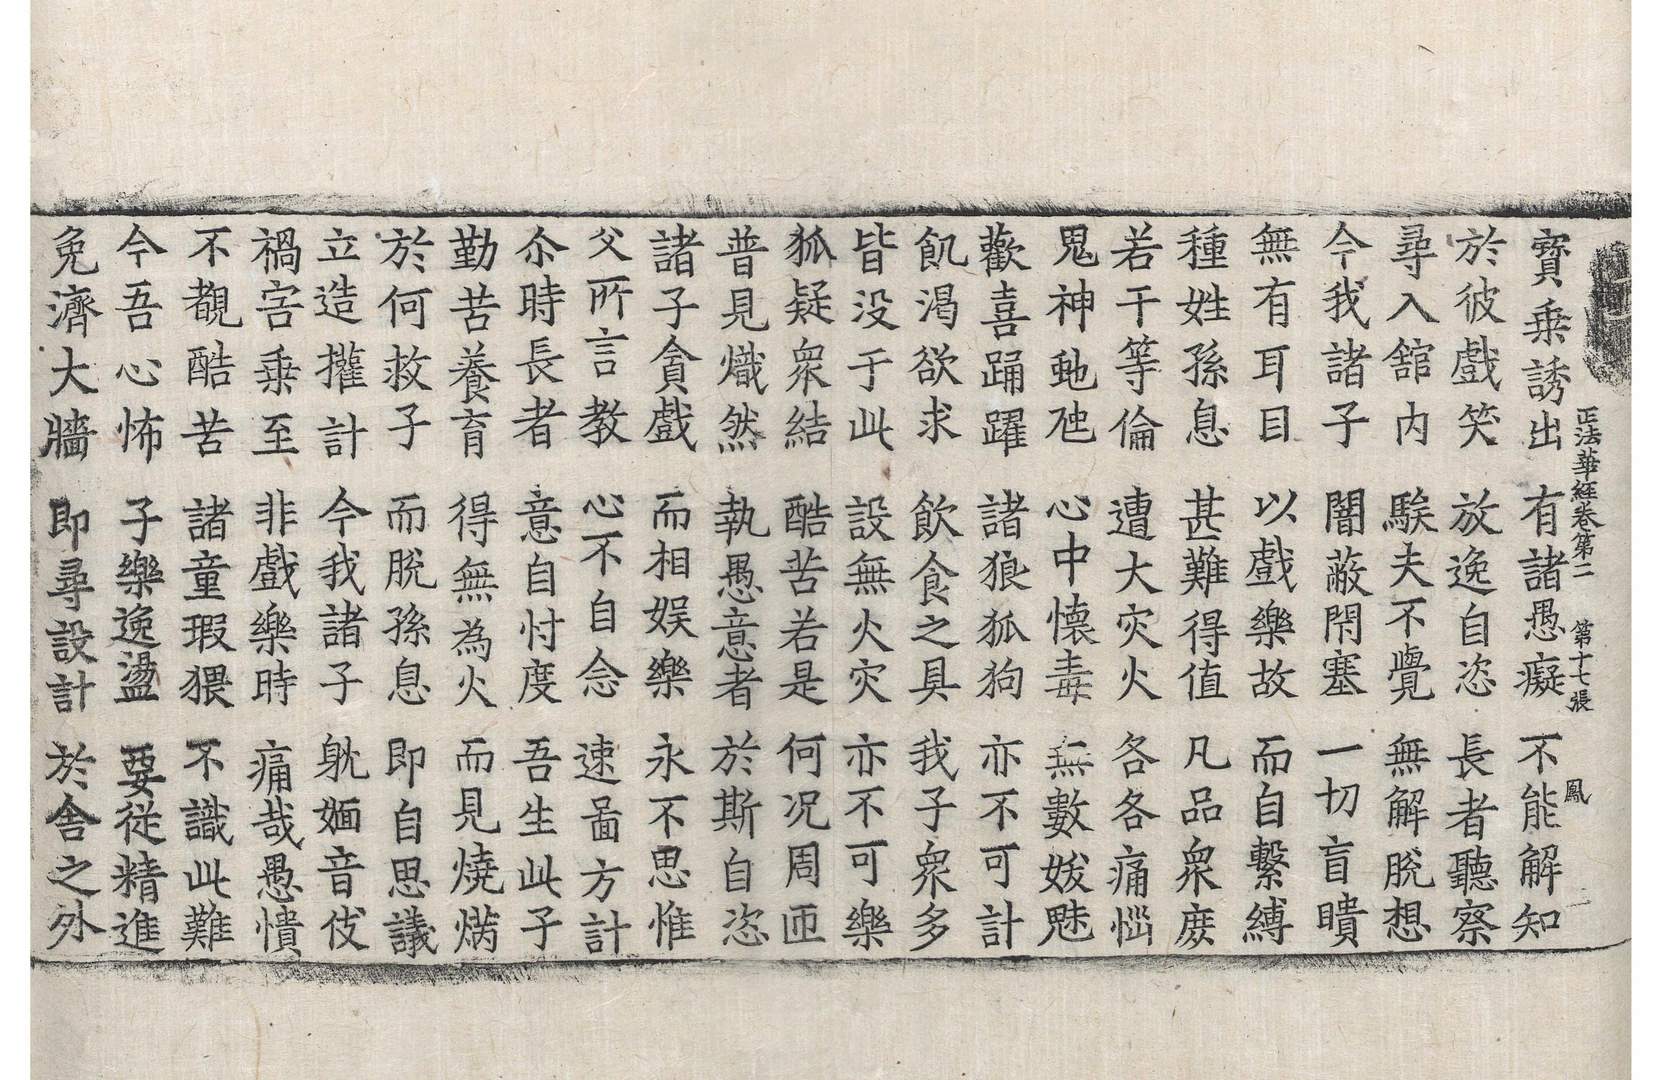 正法華經卷第二 第十七張 鳳
寶乗誘出 有諸愚癡 不能解知
於彼戲笑 放逸自恣 長者聽察
尋入舘内 騃夫不覺 無解脫想
今我諸子 闇蔽閇塞 一切盲瞶
無有耳目 以戲樂故 而自繫縛
種姓孫息 甚難得值 凡品衆庻
若干等倫 遭大灾火 各各痛惱
鬼神虵虺 心中懐毒 無數妭魅
歡喜踊躍 諸狼狐狗 亦不可計
飢渴欲求 飲食之具 我子衆多
皆没于此 設無火灾 亦不可樂
狐疑衆結 酷苦若是 何况周匝
普見熾然 執愚意者 於斯自恣
諸子貪戲 而相娱樂 永不思惟
父所言教 心不自念 速啚方計
尒時長者 意自忖度 吾生此子
勤苦養育 得無為火 而見燒㷟
於何救子 而脫孫息 即自思議
立造權計 今我諸子 躭媔音伎
禍害乗至 非戲樂時 痛哉愚憒
不覩酷苦 諸童瑕猥 不識此難
今吾心怖 子樂逸盪 要從精進
免濟大牆 即尋設計 於舍之外